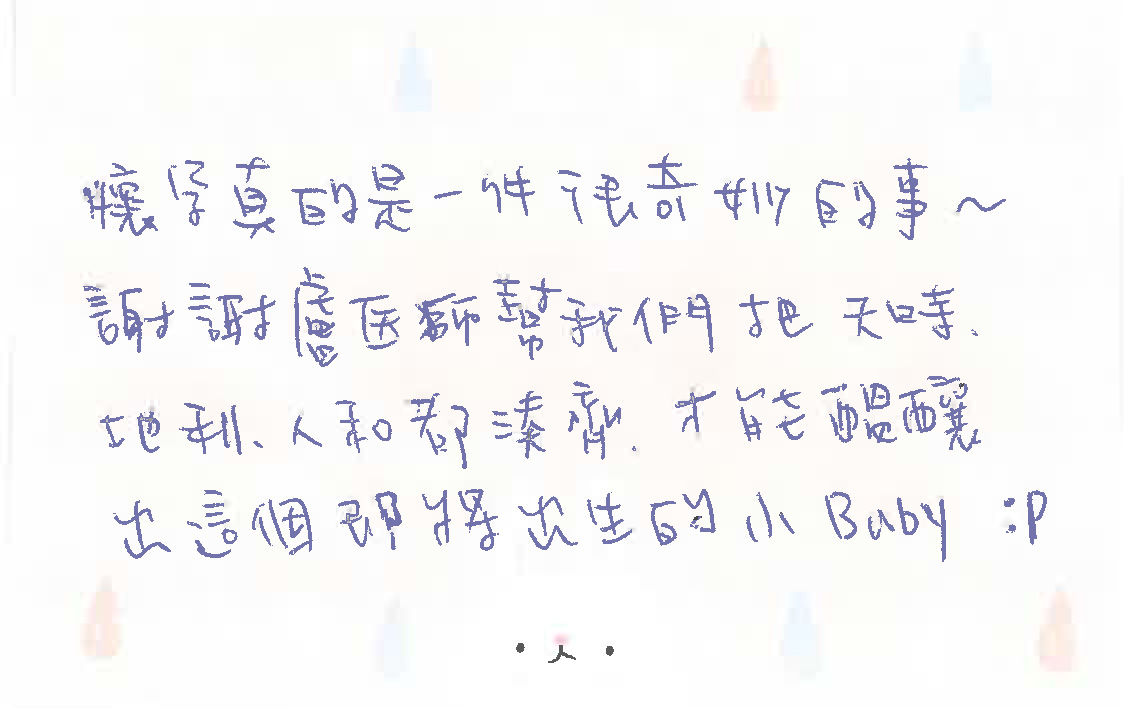 懷孕真的是一件很奇妙的事~
謝謝盧医師幫我們把天時、
地利、人和都湊齊，才能醞釀
出這個即將出生的小Baby :P